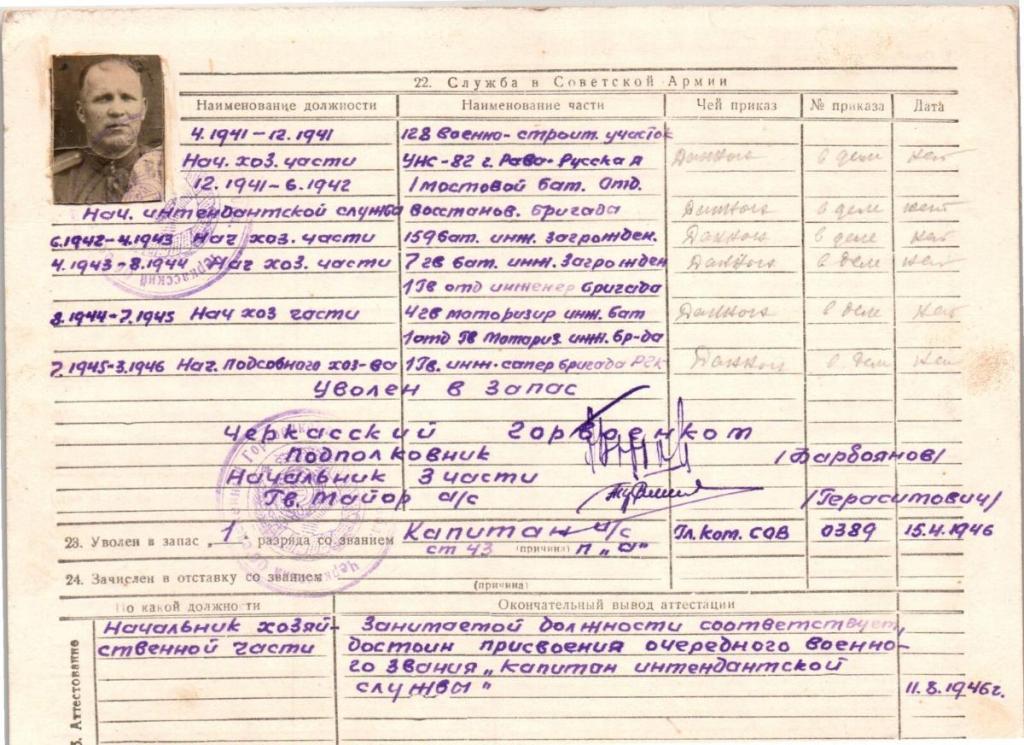 22. Служба в Советской Армии
Наименование должности Наименование части Чей приказ № приказа Дата
4.1941-12.1941 128 военно-строит. участок
Нач. хоз. части УНС-82 г. Рава-Русская Данного в деле нет
12.1941-6.1942 1 мостовой бат. Отд.
Нач. интендантской служба восстанов. бригада Данного в деле нет
6.1942-4.1943 Нач хоз. части 159 бат. инж. загрожден. Данного в деле нет
4.1943-8.1944 Нач хоз. части 7 гв бат. инж. Загрожден Данного в деле нет
1 Гв отд инженер бригада
8.1944-7.1945 Нач хоз части 4 гв моторизир инж. бат Данного в деле нет
1 отд Гв Мотариз. инж. бр-да
7.1945-3.1946 Нач. Подсобного хоз-ва 1 Гв. инж-сапер бригада РГК Данного в деле нет
Уволен в Запас
Черкасский Горвоенком
Подполковник /Барбоянов/
Начальник 3 части
Гв. Майор а/с /Герасимович/
23. Уволен в запас „1. разряда со званием Капитан и/с Гл.ком. СОВ 0389 15.4.1946
ст 43 (причина) п „а"
24. Зачислен в отставку со званием
(причина)
По какой должности Окончательный вывод аттестации
Начальник хозяй- Занимаемой должности соответствует,
ственной части достоин присвоения очередного военно-
го звания „Капитан интендантской
службы" 11.8.1946г.
Аттестование
Черкасский